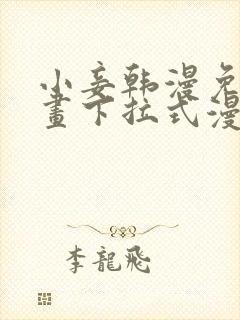 小妾韩漫免
畫下拉式漫
李龍飛